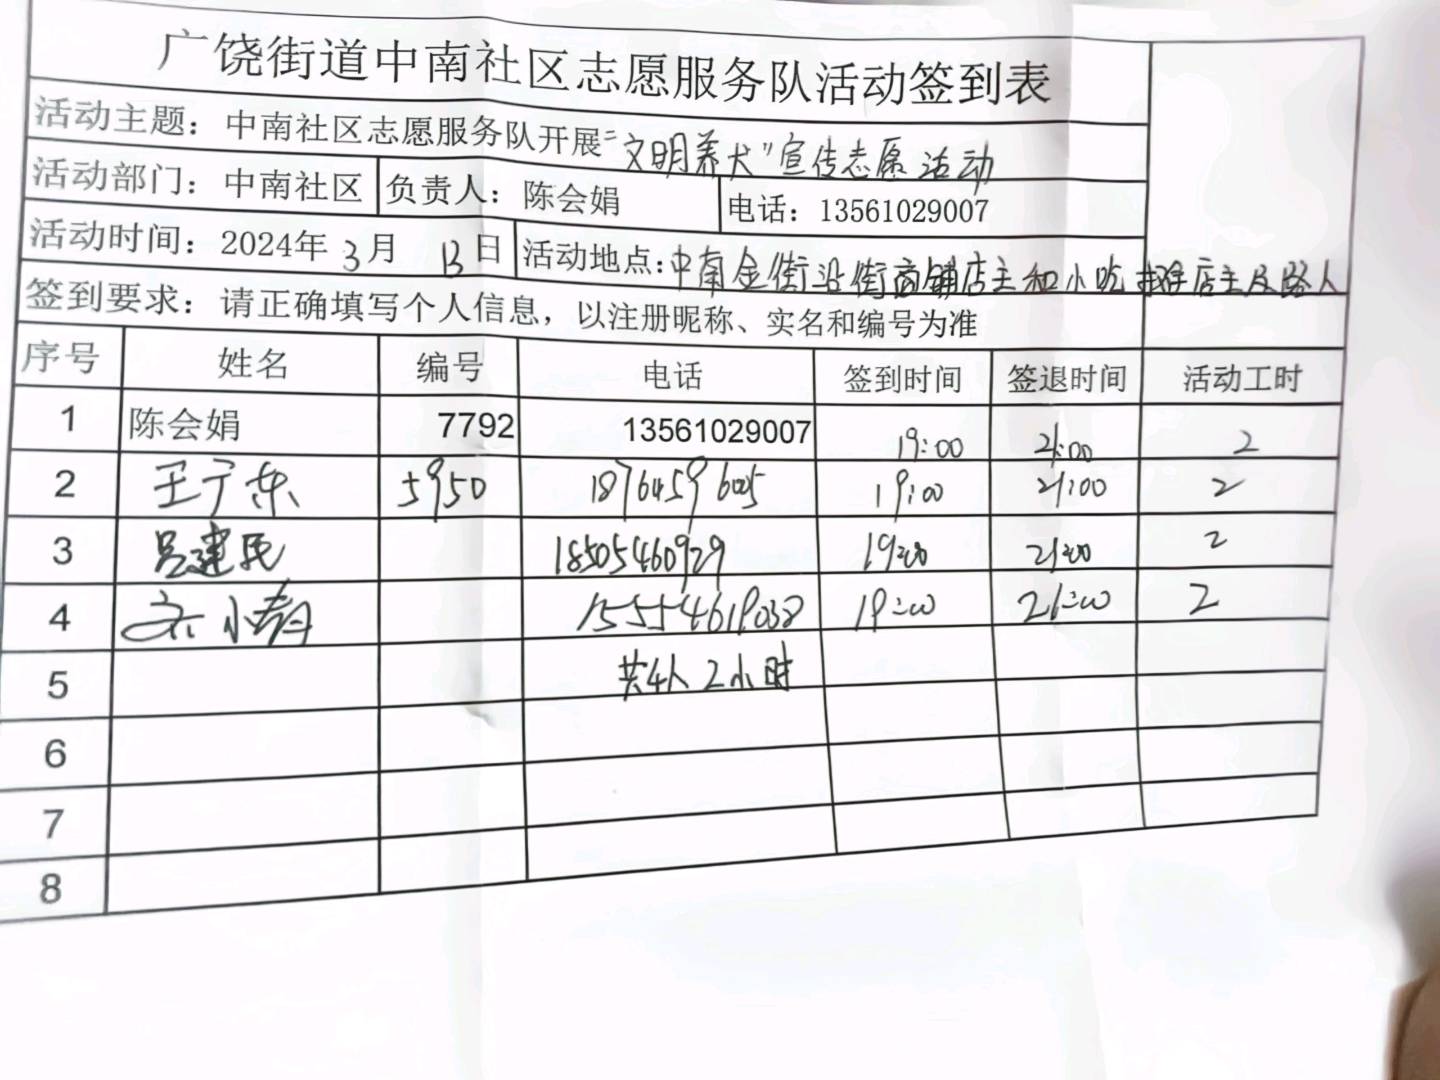 广饶街道中南社区志愿服务队活动签到表
活动主题：中南社区志愿服务队开展“文明养犬”宣传志愿活动
活动部门：中南社区 负责人：陈会娟 电话：13561029007
活动时间：2024年3月13日 活动地点：中南金街沿街商铺店主和小吃摊店主及路人
签到要求：请正确填写个人信息，以注册昵称、实名和编号为准
序号 姓名 编号 电话 签到时间 签退时间 活动工时
1 陈会娟 7792 13561029007 19:00 21:00 2
2 王广东 5950 19:00 21:00 2
3 吕建民 18505460929 19:00 21:00 2
4 15554619038 19:00 21:00 2
5 共4人2小时
6
7
8